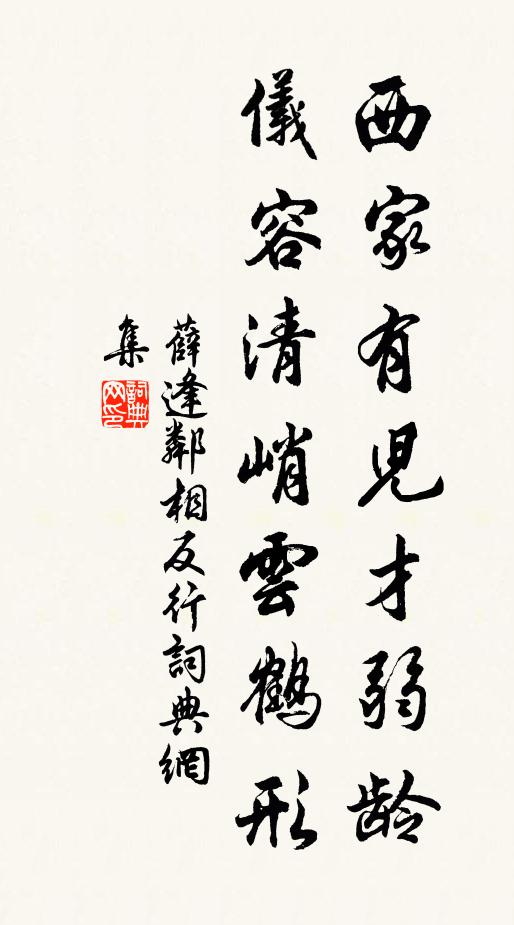 西家有兒才弱齡
儀容清峭雲鶴形
薛逢鄰相反行詞典網
集
詞典網印